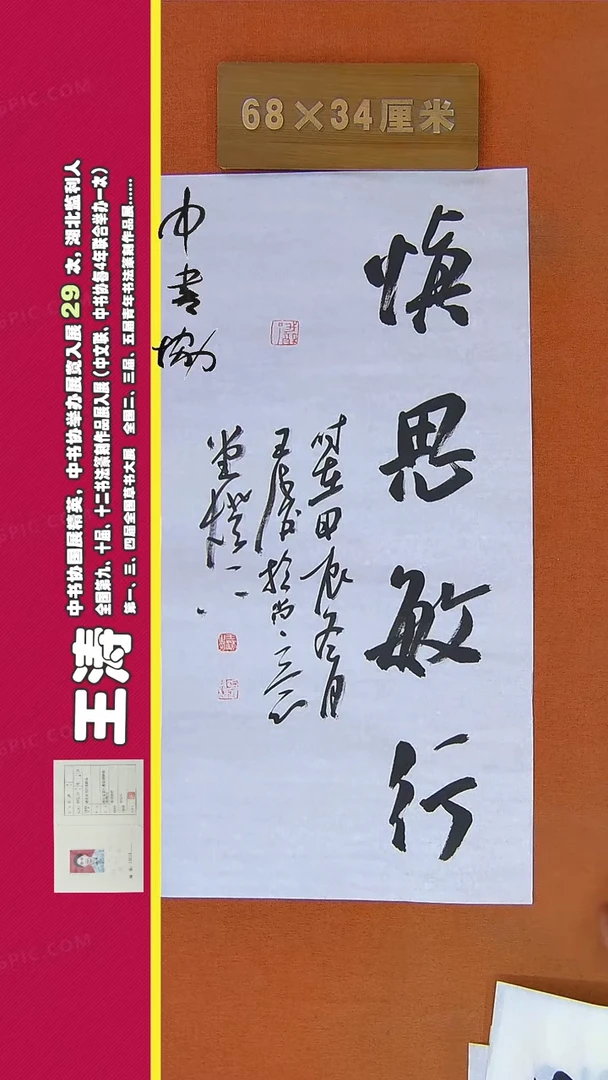 68×34厘米
慎思敏行
时在甲辰冬月
王涛於尚
中书协
王涛
中书协国展精英，中书协举办展览入展 29 次，湖北监利人
全国第九、十届、十二书法篆刻作品展入展（中文联、中书协每4年联合举办一次）
第一、三、四届全国草书大展 全国二、三届、五届青年书法篆刻作品展......
PIC.COM